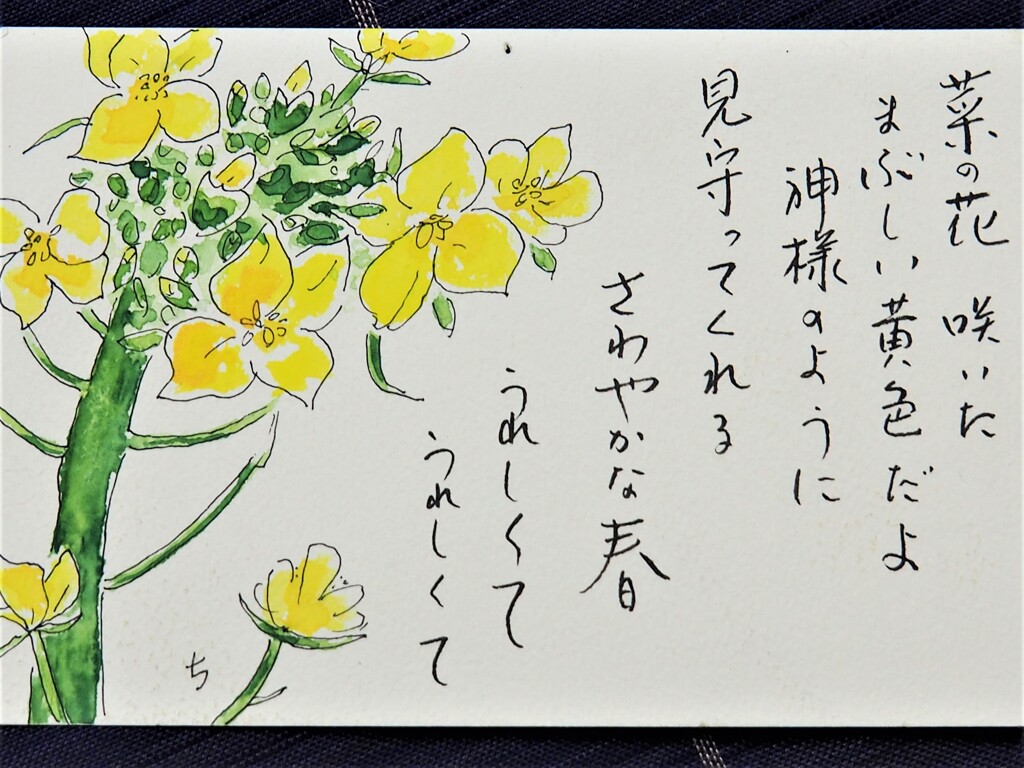 菜の花 咲いた
まぶしい黄色だよ
神様のように
見守ってくれる
さわやかな春
うれしくて
うれしくて
ち